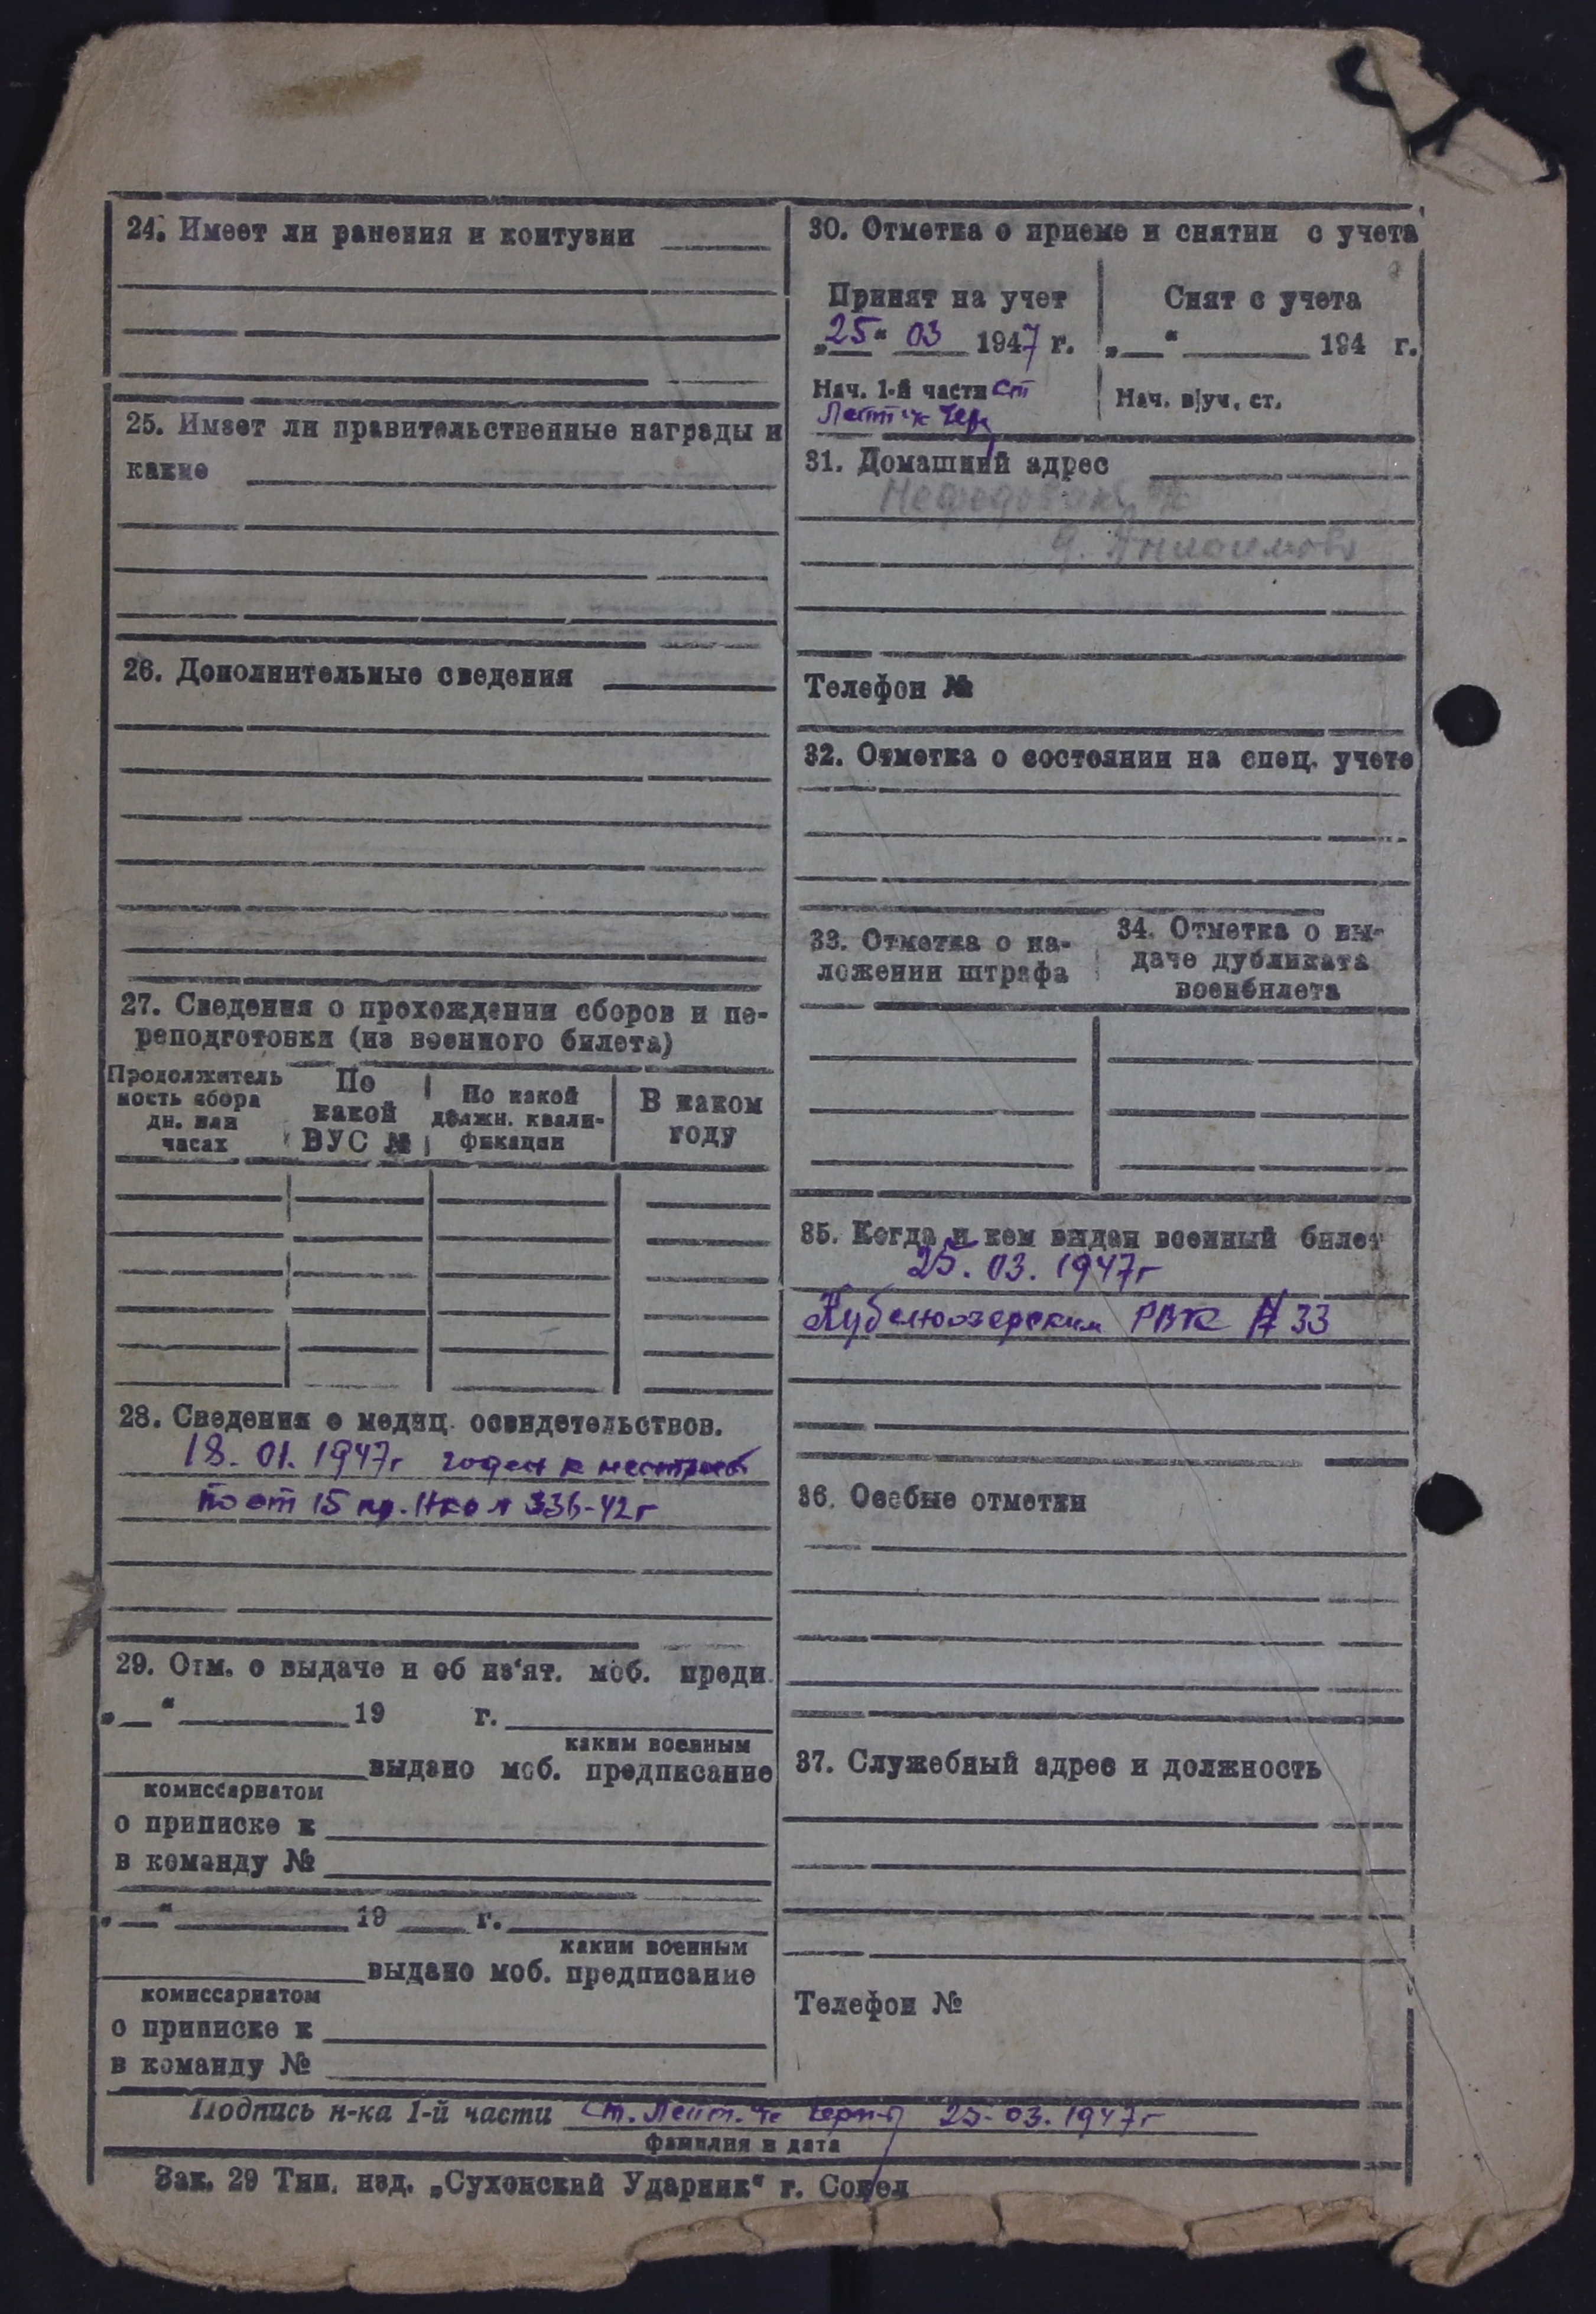 24. Имеет ли ранения и контузии
25. Имеет ли правительственные награды и
какие
26. Дополнительные сведения
27. Сведения о прохождении сборов и пе-
реподготовки (из военного билета)
Продолжитель
ность сбора
дн. или
часах
По
какой
ВУС №
По какой
должн. квали-
фикации
В каком
году
28. Сведения о медиц. освидетельствов.
18. 01. 1947г годен к нестроев
по ст 15 пр. НКО № 336-42г
29. Отм. о выдаче и об из'ят. моб. предп.
„ “ 19 г.
каким военным
выдано моб. предписание
комиссариатом
о приписке к
в команду №
„ “ 19 г.
каким военным
выдано моб. предписание
комиссариатом
о приписке к
в команду №
30. Отметка о приеме и снятии с учета
Принят на учет
„25“ 03 1947 г.
Нач. 1-й части ст
Лейт-к
Снят с учета
„ “ 194 г.
Нач. в|уч. ст.
31. Домашний адрес
Телефон №
32. Отметка о состоянии на спец. учете
33. Отметка о на-
ложении штрафа
34. Отметка о вы-
даче дубликата
военбилета
35. Когда и кем выдан военный билет
25. 03. 1947г
Кубеноозерским РВК № 33
36. Особые отметки
37. Служебный адрес и должность
Телефон №
Подпись н-ка 1-й части Ст. Лейт. 25-03. 1947г
фамилия и дата
Зак. 29 Тип. изд. „Сухонский Ударник“ г. Сокол